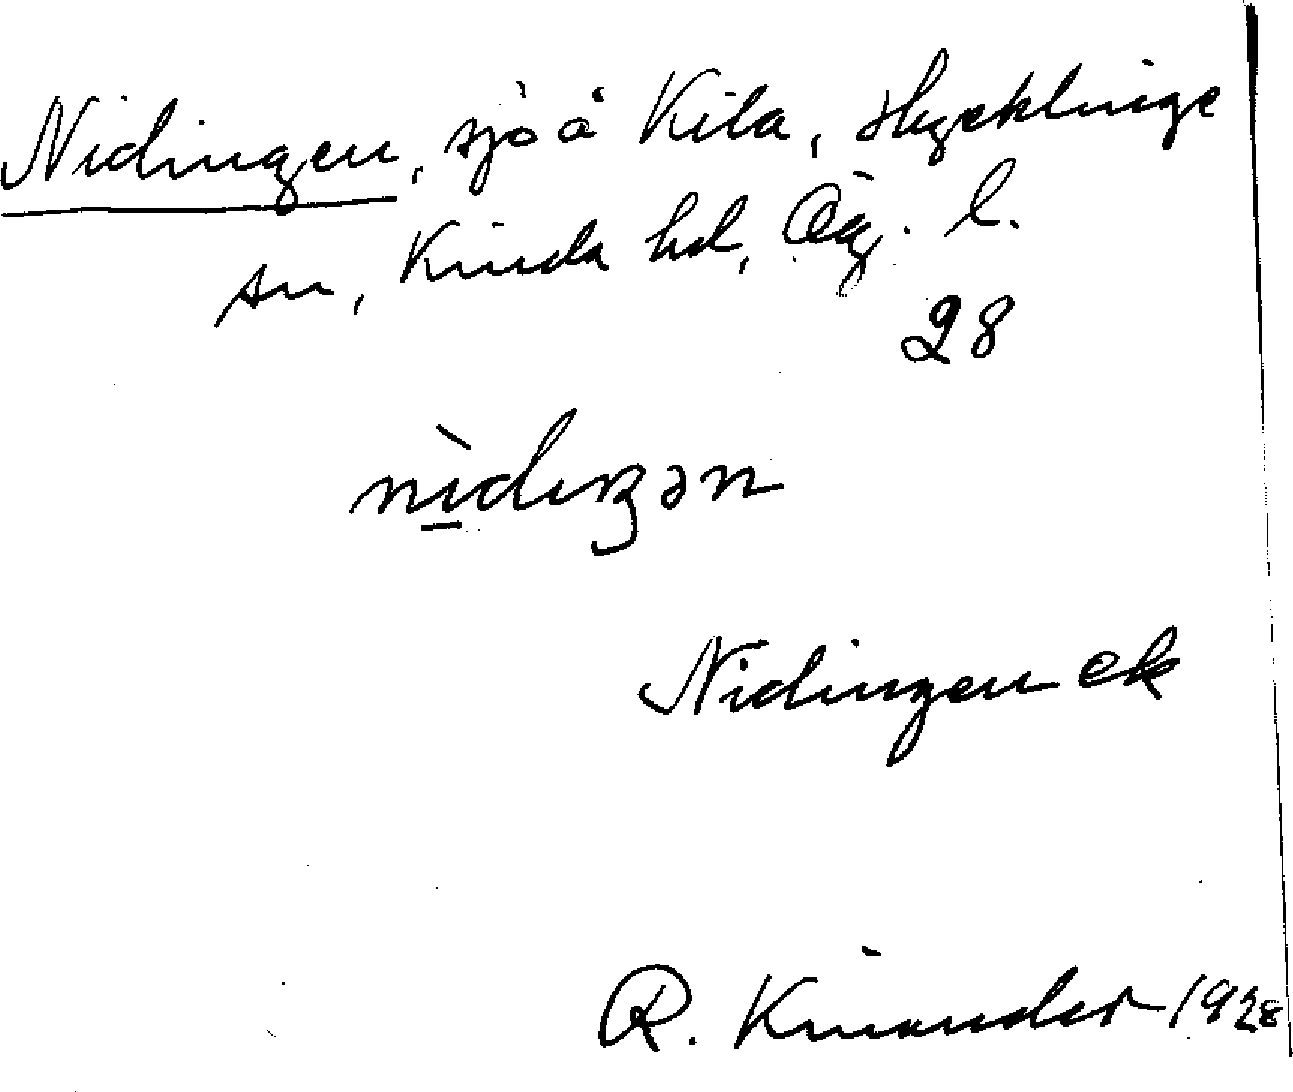 Nidingen, sjö å Kila, Hycklinge
sn, Kinda hd, Ög. l.
28
nìdiŋən
Nidingen ek
R. Kinander 1928